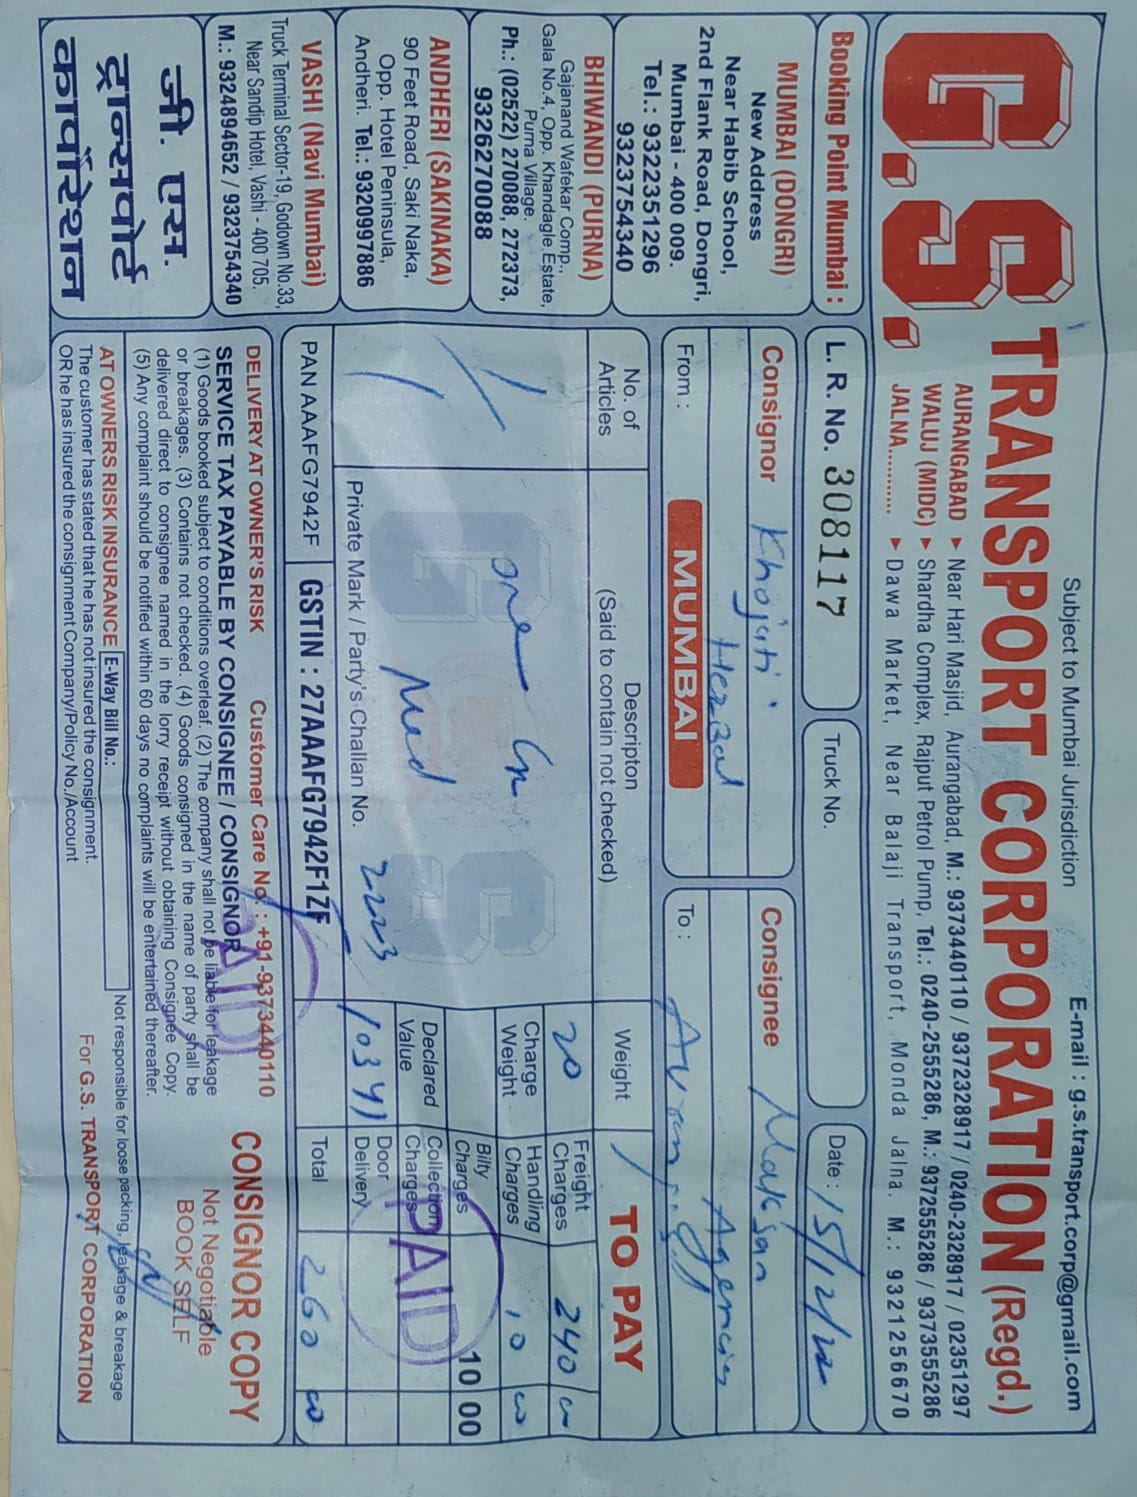 Subject to Mumbai Jurisdiction
E-mail : g.s.transport.corp@gmail.com
G.S. TRANSPORT CORPORATION (Regd.)
AURANGABAD ► Near Hari Masjid, Aurangabad, M.: 9373440110 / 9372328917 / 0240-2328917 / 02351297
WALUJ (MIDC) ► Shardha Complex, Rajput Petrol Pump, Tel.: 0240-2555286, M.: 9372555286 / 9373555286
JALNA............ ► Dawa Market, Near Balaji Transport, Monda Jalna. M.: 9321256670
Booking Point Mumbai :
MUMBAI (DONGRI)
New Address
Near Habib School,
2nd Flank Road, Dongri,
Mumbai - 400 009.
Tel.: 9322351296
9323754340
BHIWANDI (PURNA)
Gajanand Wafekar Comp.,
Gala No.4, Opp. Khandagle Estate,
Purna Village.
Ph.: (02522) 270088, 272373,
9326270088
ANDHERI (SAKINAKA)
90 Feet Road, Saki Naka,
Opp. Hotel Peninsula,
Andheri. Tel.: 9320997886
VASHI (Navi Mumbai)
Truck Terminal Sector-19, Godown No.33,
Near Sandip Hotel, Vashi - 400 705.
M.: 9324894652 / 9323754340
जी. एस.
ट्रान्सपोर्ट
कार्पोरेशन
L. R. No. 308117
Truck No.
Date : 15/12/22
Consignor Khojati
Herbal
Consignee Maksan
Agencies
From : MUMBAI
To :
No. of Articles
Descripton
(Said to contain not checked)
Weight
TO PAY
one
Med
Private Mark / Party's Challan No. 2223
20
Charge Weight
Declared Value
10341
Freight Charges 240
Handling Charges 10
Bilty Charges 10 00
Collection Charges
Door Delivery
Total 260
PAID
PAN AAAFG7942F
GSTIN : 27AAAFG7942F1ZF
DELIVERY AT OWNER'S RISK Customer Care No. : +91-9373440110
SERVICE TAX PAYABLE BY CONSIGNEE / CONSIGNOR
(1) Goods booked subject to conditions overleaf. (2) The company shall not be liable for leakage
or breakages. (3) Contains not checked. (4) Goods consigned in the name of party shall be
delivered direct to consignee named in the lorry receipt without obtaining Consignee Copy.
(5) Any complaint should be notified within 60 days no complaints will be entertained thereafter.
PAID
CONSIGNOR COPY
Not Negotiable
BOOK SELF
AT OWNERS RISK INSURANCE E-Way Bill No.:
Not responsible for loose packing, leakage & breakage
The customer has stated that he has not insured the consignment.
OR he has insured the consignment Company/Policy No./Account
For G.S. TRANSPORT CORPORATION